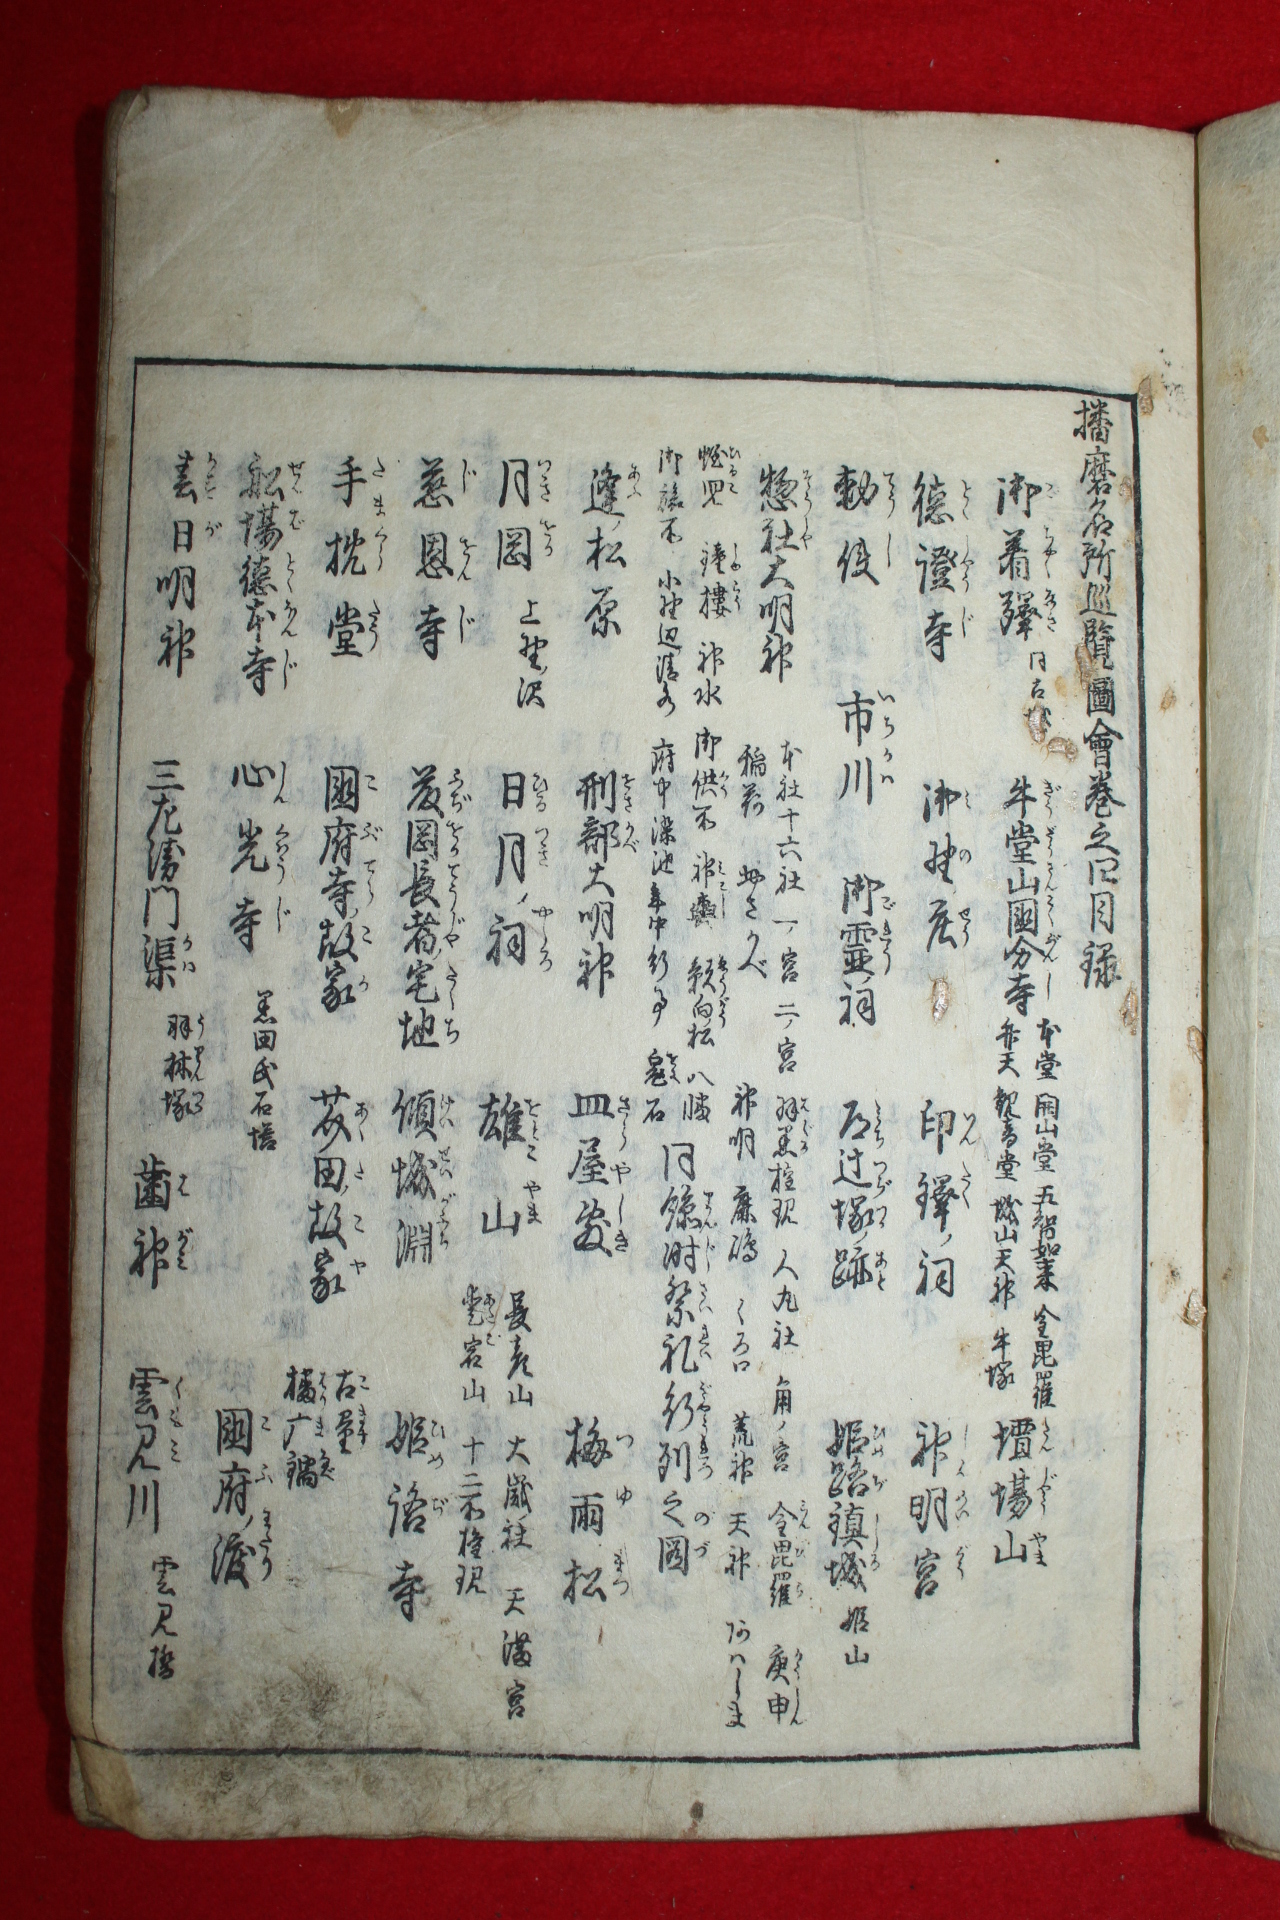 播磨名所巡覧圖會巻之四目録
御着驛 同古城 牛堂山國分寺 本堂 開山堂 五智如来 金毘羅 弁天 観音堂 城山天神 牛塚 壇場山
德證寺 御野庄 印鐸ノ祠 神明宮
勅使 市川 御霊祠 辻塚ノ跡 姫路鎮城 姫山
惣社大明神 本社十六社 一ノ宮 二ノ宮 羽黒権現 人丸社 角ノ宮 金毘羅 庚申
稲荷 神明 鹿嶋 荒神 天神
蛭児 鐘楼 神水 御供所 神輿 松 八勝
御旅所 小野辺清水 府中 年中行事 石 同臨時祭礼行列之圖
逢ノ松原 刑部大明神 皿屋敷 梅雨松
月岡 上野ノ沢 日月ノ祠 雄山 長彦山 大歳ノ社 天満宮 愛宕山 十二所権現
慈恩寺 藤岡長者ノ宅地 傾城淵 姫路寺
手枕堂 國府寺ノ故家 芥田ノ故家 古量 播广鍋
舩場德本寺 心光寺 黒田氏石塔 國府ノ渡
春日明神 三左衛門渠 羽林塚 歯神 雲見川 雲見橋